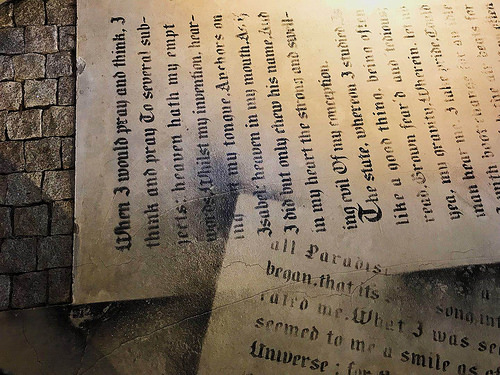 When I would pray and think, I
think and pray To several sub-
jects; heaven hath my empt
words, Whilst my invention, hear-
my tongue, Anchors on
Isabel: heaven in my mouth, As if
I did but only chew his name, And
in my heart the strong and swell-
ing evil Of my conception.
The state, whereon I studied, Is
like a good thing, being often
read, Grown fear'd and tedious;
yea, my gravity, Wherein, let no
man hear me, I take pride, Could
all Paradis
began, that its
song, int
rated me. What I was see
seemed to me a smile as of
Universe: for